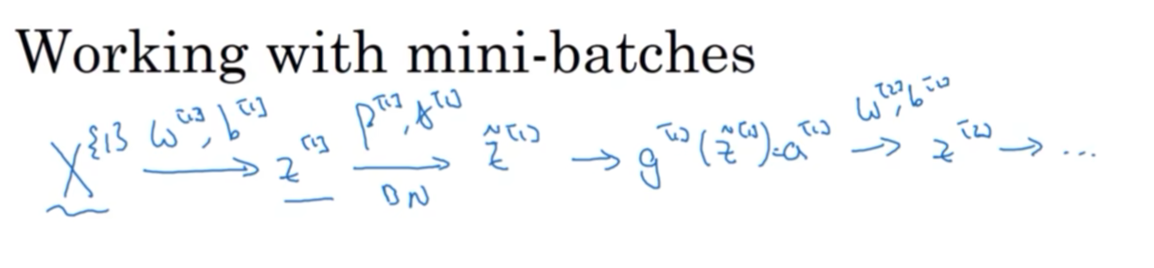 Working with mini-batches
X^{1} →(w^[1], b^[1]) z^[1] →(β^[1], γ^[1]) (BN) z̃^[1] → g^[1](z̃^[1]) = a^[1] →(w^[2], b^[2]) z^[2] → ...